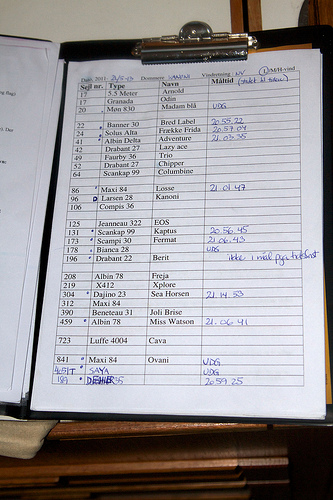 Dato 2011- 24/5-13 Dommere Vindretning: NV
Sejl nr. Type Navn Måltid
17 5.5 Meter Arnold
17 Granada Odin
20 Møn 830 Madam blå UDG
22 Banner 30 Bred Label 20.55.22
24 Solus Alta Frække Frida 20.57.04
41 Albin Delta Adventure 21.03.35
42 Drabant 27 Lazy ace
49 Faurby 36 Trio
52 Drabant 27 Chipper
64 Scankap 99 Columbine
86 Maxi 84 Losse 21.01.47
96 D Larsen 28 Kanoni
106 Compis 36
125 Jeanneau 322 EOS
131 Scankap 99 Kaptus 20.56.45
173 Scampi 30 Fermat 21.06.43
178 Bianca 28 UDG
196 Drabant 22 Berit ikke i mål pga
208 Albin 78 Freja
219 X412 Xplore
304 Dajino 23 Sea Horsen 21.14.53
312 Maxi 84
390 Beneteau 31 Joli Brise
459 Albin 78 Miss Watson 21.06.41
723 Luffe 4004 Cava
841 Maxi 84 Ovani UDG
SAYA UDG
DEHLER 35 20 59 25